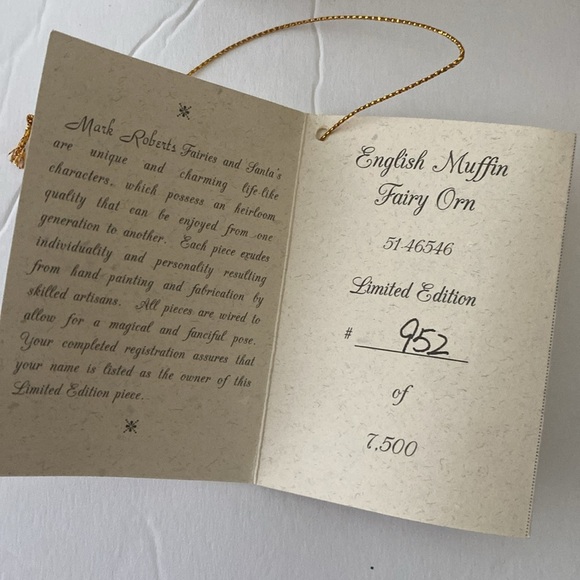 Mark Roberts Fairies and Santa's
are unique and charming life-like
characters, which possess an heirloom
quality that can be enjoyed from one
generation to another. Each piece exudes
individuality and personality resulting
from hand painting and fabrication by
skilled artisans. All pieces are wired to
allow for a magical and fanciful pose.
Your completed registration assures that
your name is listed as the owner of this
Limited Edition piece.
English Muffin
Fairy Orn
51-46546
Limited Edition
# 952
of
7,500